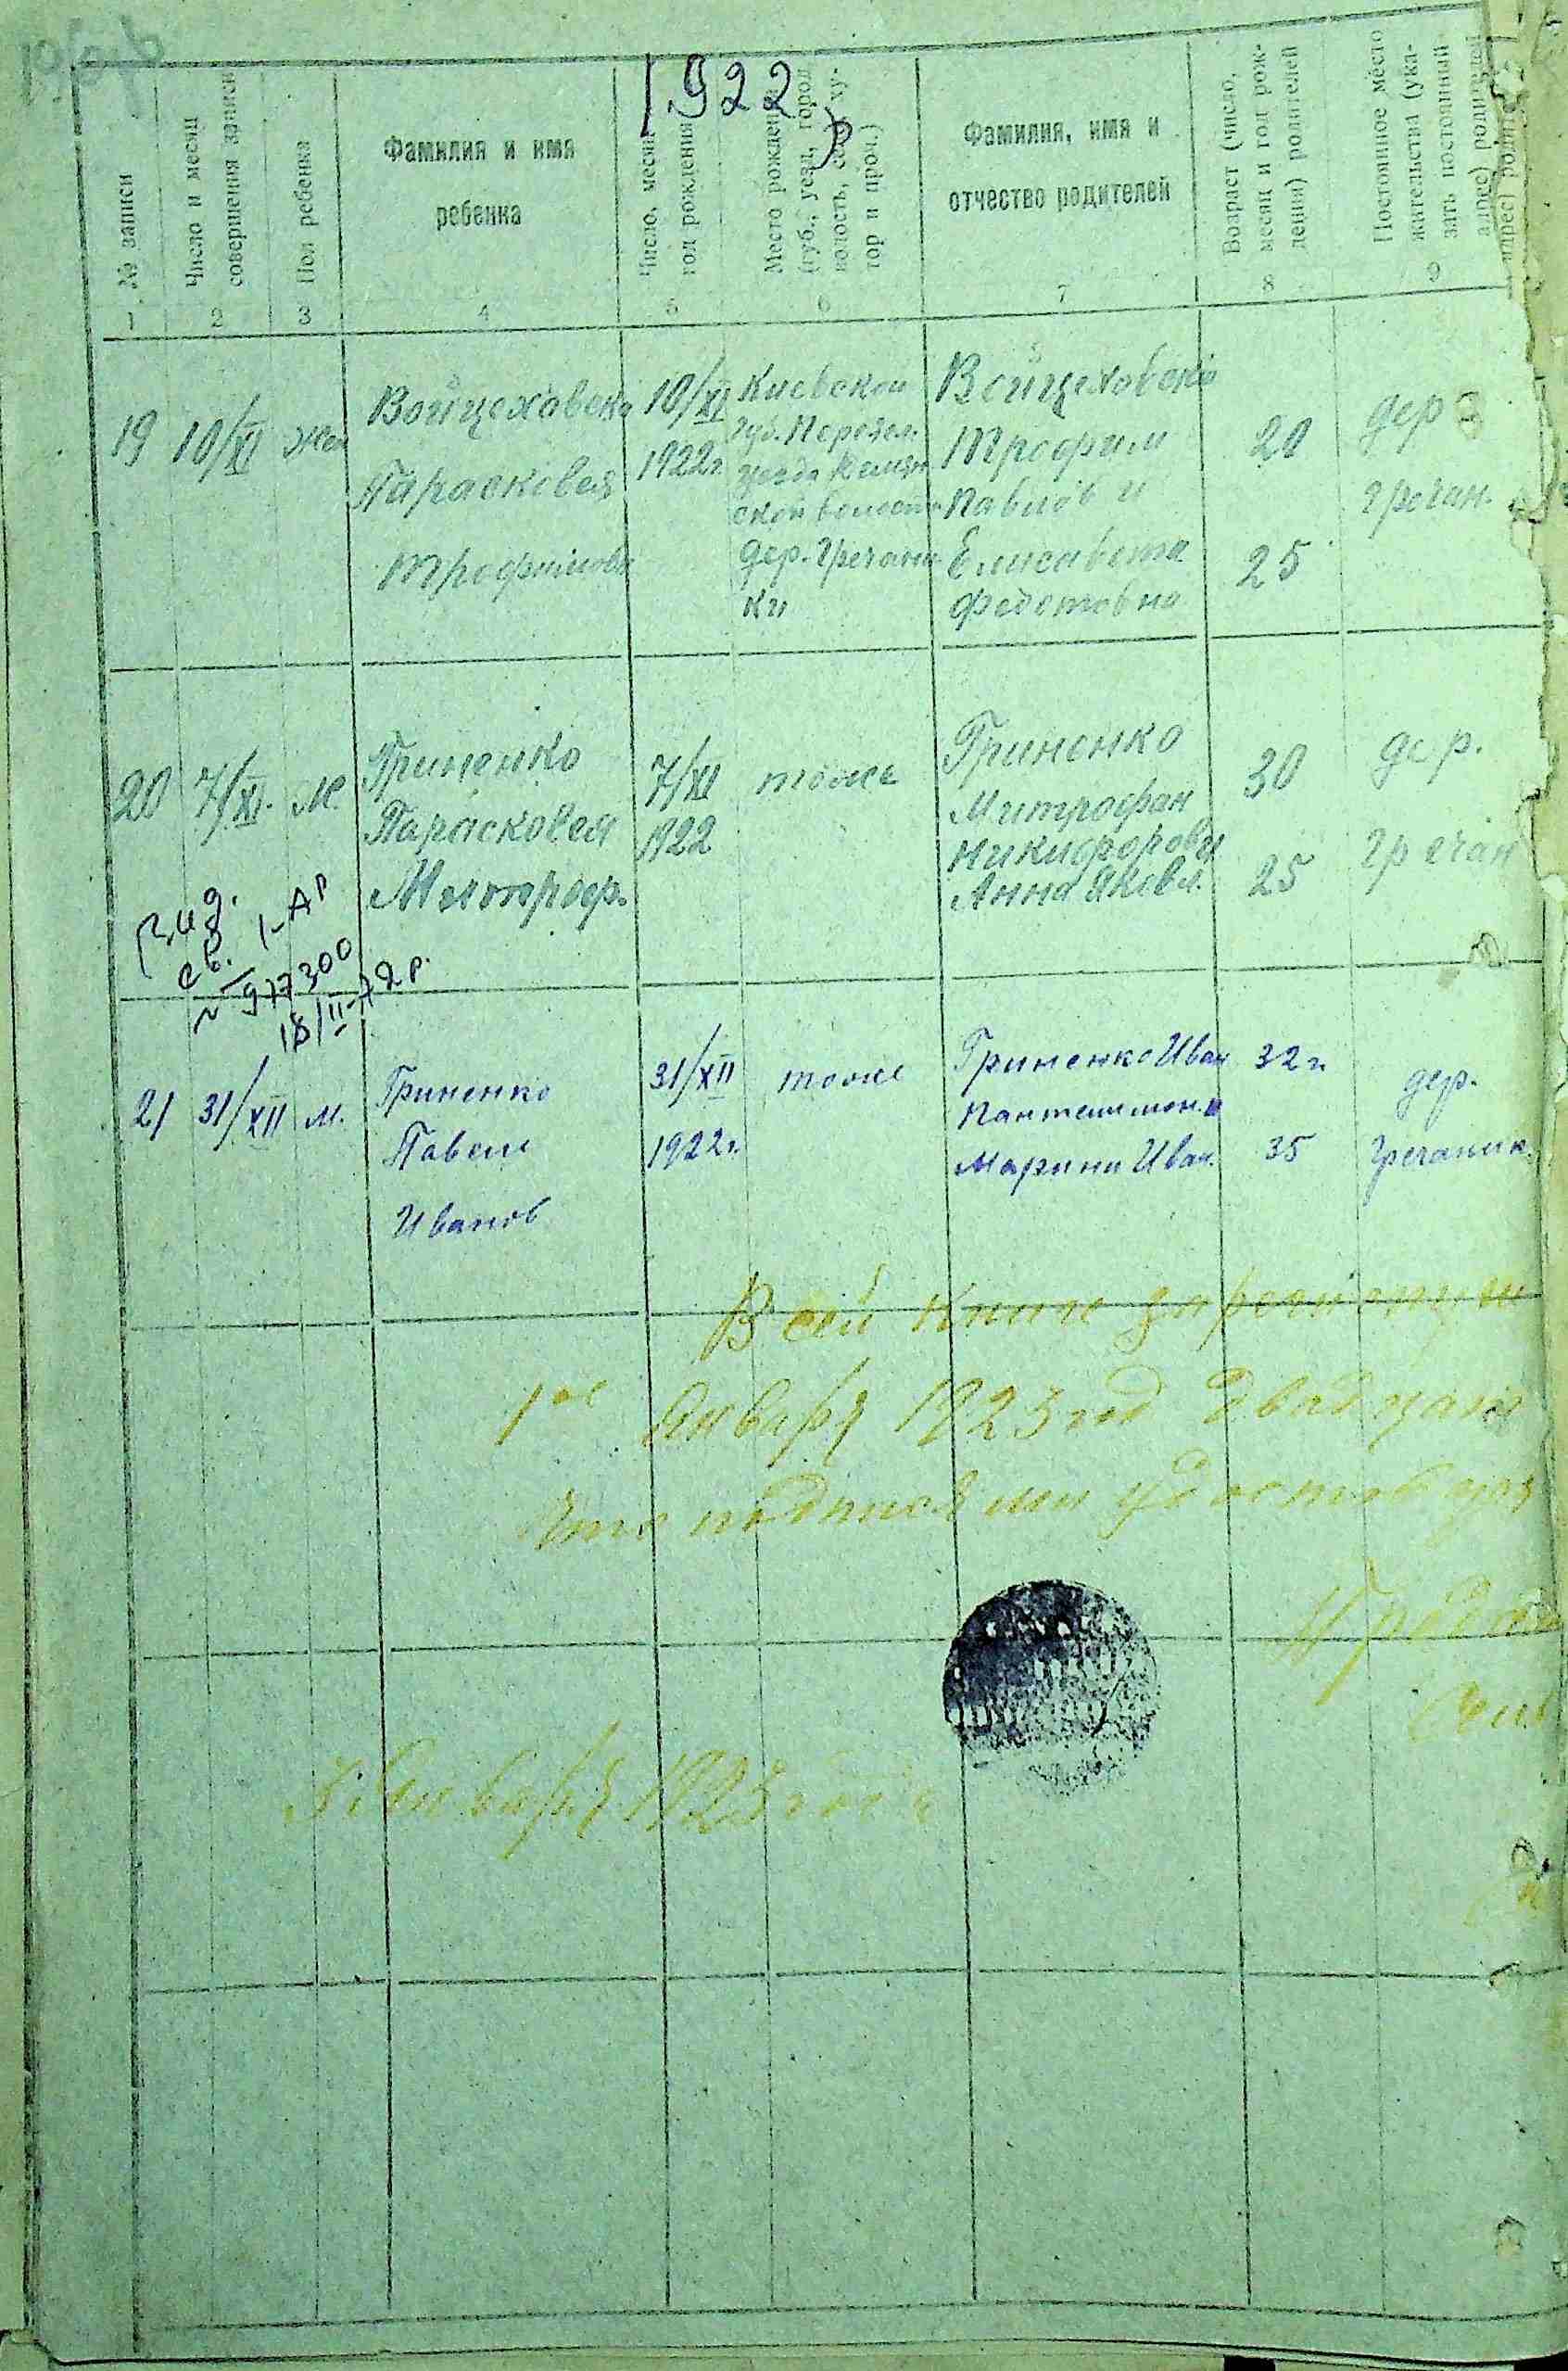 1922 р
№ записи
Число и месяц
совершения записи
Пол ребенка
Фамилия и имя
ребенка
Число, месяц
год рождения
Место рожден
(губ., уезд, город
волость, село, ху-
тор и проч.)
Фамилия, имя и
отчество родителей
Возраст (число,
месяц и год рож-
дения) родителей
Постоянное место
жительства (ука-
зать постоянный
адрес) родителей
1 2 3 4 5 6 7 8 9
19
10/XI
жен
Войцеховск
Парасковея
Трофимова
10/XI
1922г.
Киевской
губ. Переясл.
уезда
ской волости
дер. Гречани
ки
Войцеховский
Трофим
Павлов и
Елисавета
Федотовна
20
25
дер
Гречан.
20
7/XI.
М.
Гриненко
Парасковея
Митроф.
7/XI
1922
тоже
Гриненко
Митрофан
Никифоров и
Анна Яковл.
30
25
дер.
Гречан
вид.
св. I-АР
№ 977300
18/II-72 р.
21
31/XII
м.
Гриненко
Павел
Иванов
31/XII
1922г.
тоже
Гриненко Иван
Пантелимон. и
Марина Иван.
32 г.
35
дер.
Гречаник.
В сей книге
1ое Января 1923 год двадцать
что подписями удостоверя
Января 1923 года